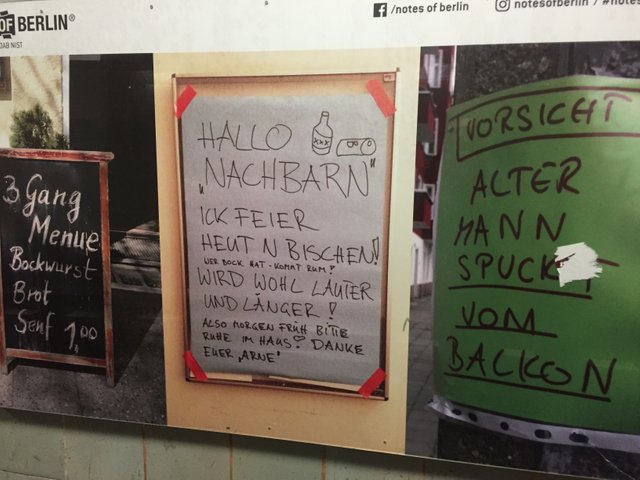 OF BERLIN®
DAB NIST
/notes of berlin
notesofberlin
3 Gang
Menue
Bockwurst
Brot
Senf 1,00
HALLO
XXX
„NACHBARN“
ICK FEIER
HEUT N BISCHEN!
WER BOCK HAT - KOMMT RUM!
WIRD WOHL LAUTER
UND LÄNGER!
ALSO MORGEN FRÜH BITTE
RUHE IM HAUS! DANKE
EUER „ARNE“
VORSICHT
ALTER
MANN
SPUCKT
VOM
BALKON